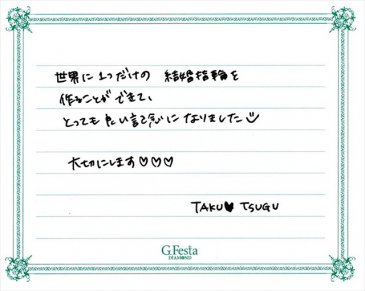 世界に1つだけの 結婚指輪を
作ることができて、
とっても良い記念になりました
大切にします♡♡♡
TAKU♥TSUGU
G.Festa
DIAMOND